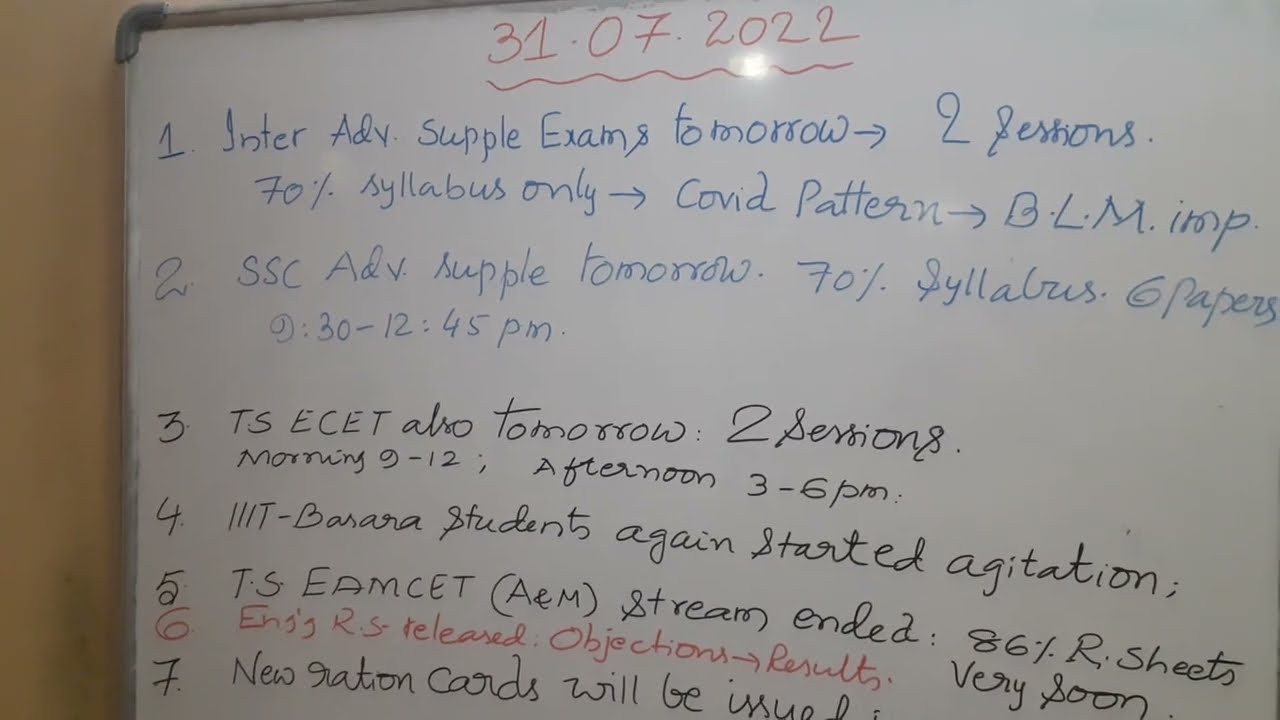 31.07.2022
1. Inter Adv. Supple Exams tomorrow → 2 Sessions.
70% syllabus only → Covid Pattern → B.L.M. imp.
2. SSC Adv. supple tomorrow. 70% Syllabus. 6 Papers
9:30-12:45 pm.
3. T.S ECET also tomorrow: 2 Sessions.
Morning 9-12; Afternoon 3-6pm.
4. IIIT-Basara Students again started agitation;
5. T.S. EAMCET (A&M) Stream ended: 86% R. Sheets
6. Eng'g R.S. released: Objections → Results. Very Soon.
7. New ration cards will be issued;